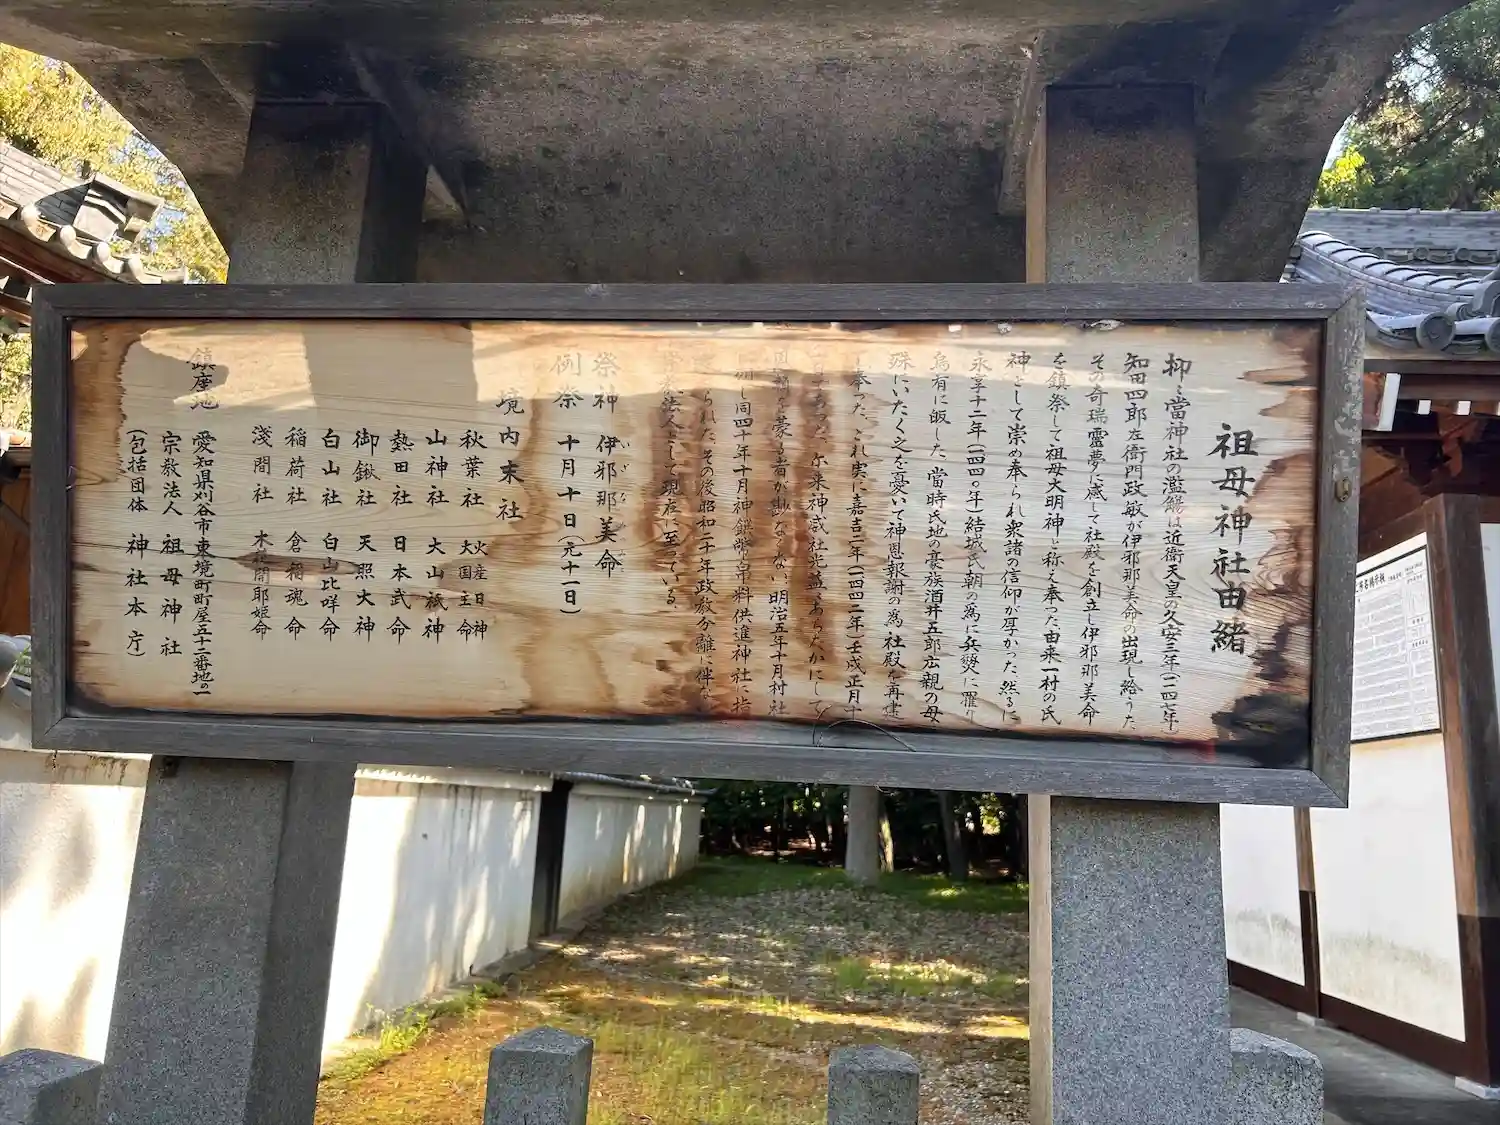 祖母神社由緒
抑々當神社の濫觴は近衛天皇の久安三年(一一四七年)
知田四郎左衛門政敏が伊邪那美命の出現し給うた
その奇瑞靈夢に感して社殿を創立し伊邪那美命
を鎮祭して祖母大明神と称え奉った由来一村の氏
神として崇め奉られ衆諸の信仰が厚かった然るに
永享十二年(一四四〇年)結城氏朝の為に兵燹に罹り
烏有に皈した當時氏地の豪族酒井五郎広親の母
殊にいたく之を憂いて神恩報謝の為社殿を再建
奉った、これ実に嘉吉二年(一四四二年)壬戌正月十
尓来神威社光益々あらたかにして
を蒙る者が尠なくない明治五年十月村社
し同四十年十月神饌幣帛料供進神社に指
られた、その後昭和二十年政教分離に伴な
法人として現在に至っている、
祭神 伊邪那美命
いざなみ
例祭 十月十日(元十一日)
境内末社
秋葉社 火産日神 大国主命
山神社 大山祇神
熱田社 日本武命
御鍬社 天照大神
白山社 白山比咩命
稲荷社 倉稲魂命
淺間社 木花開耶姫命
鎮座地 愛知県刈谷市東境町町屋五十二番地の一
宗教法人 祖母神社
(包括団体 神社本庁)